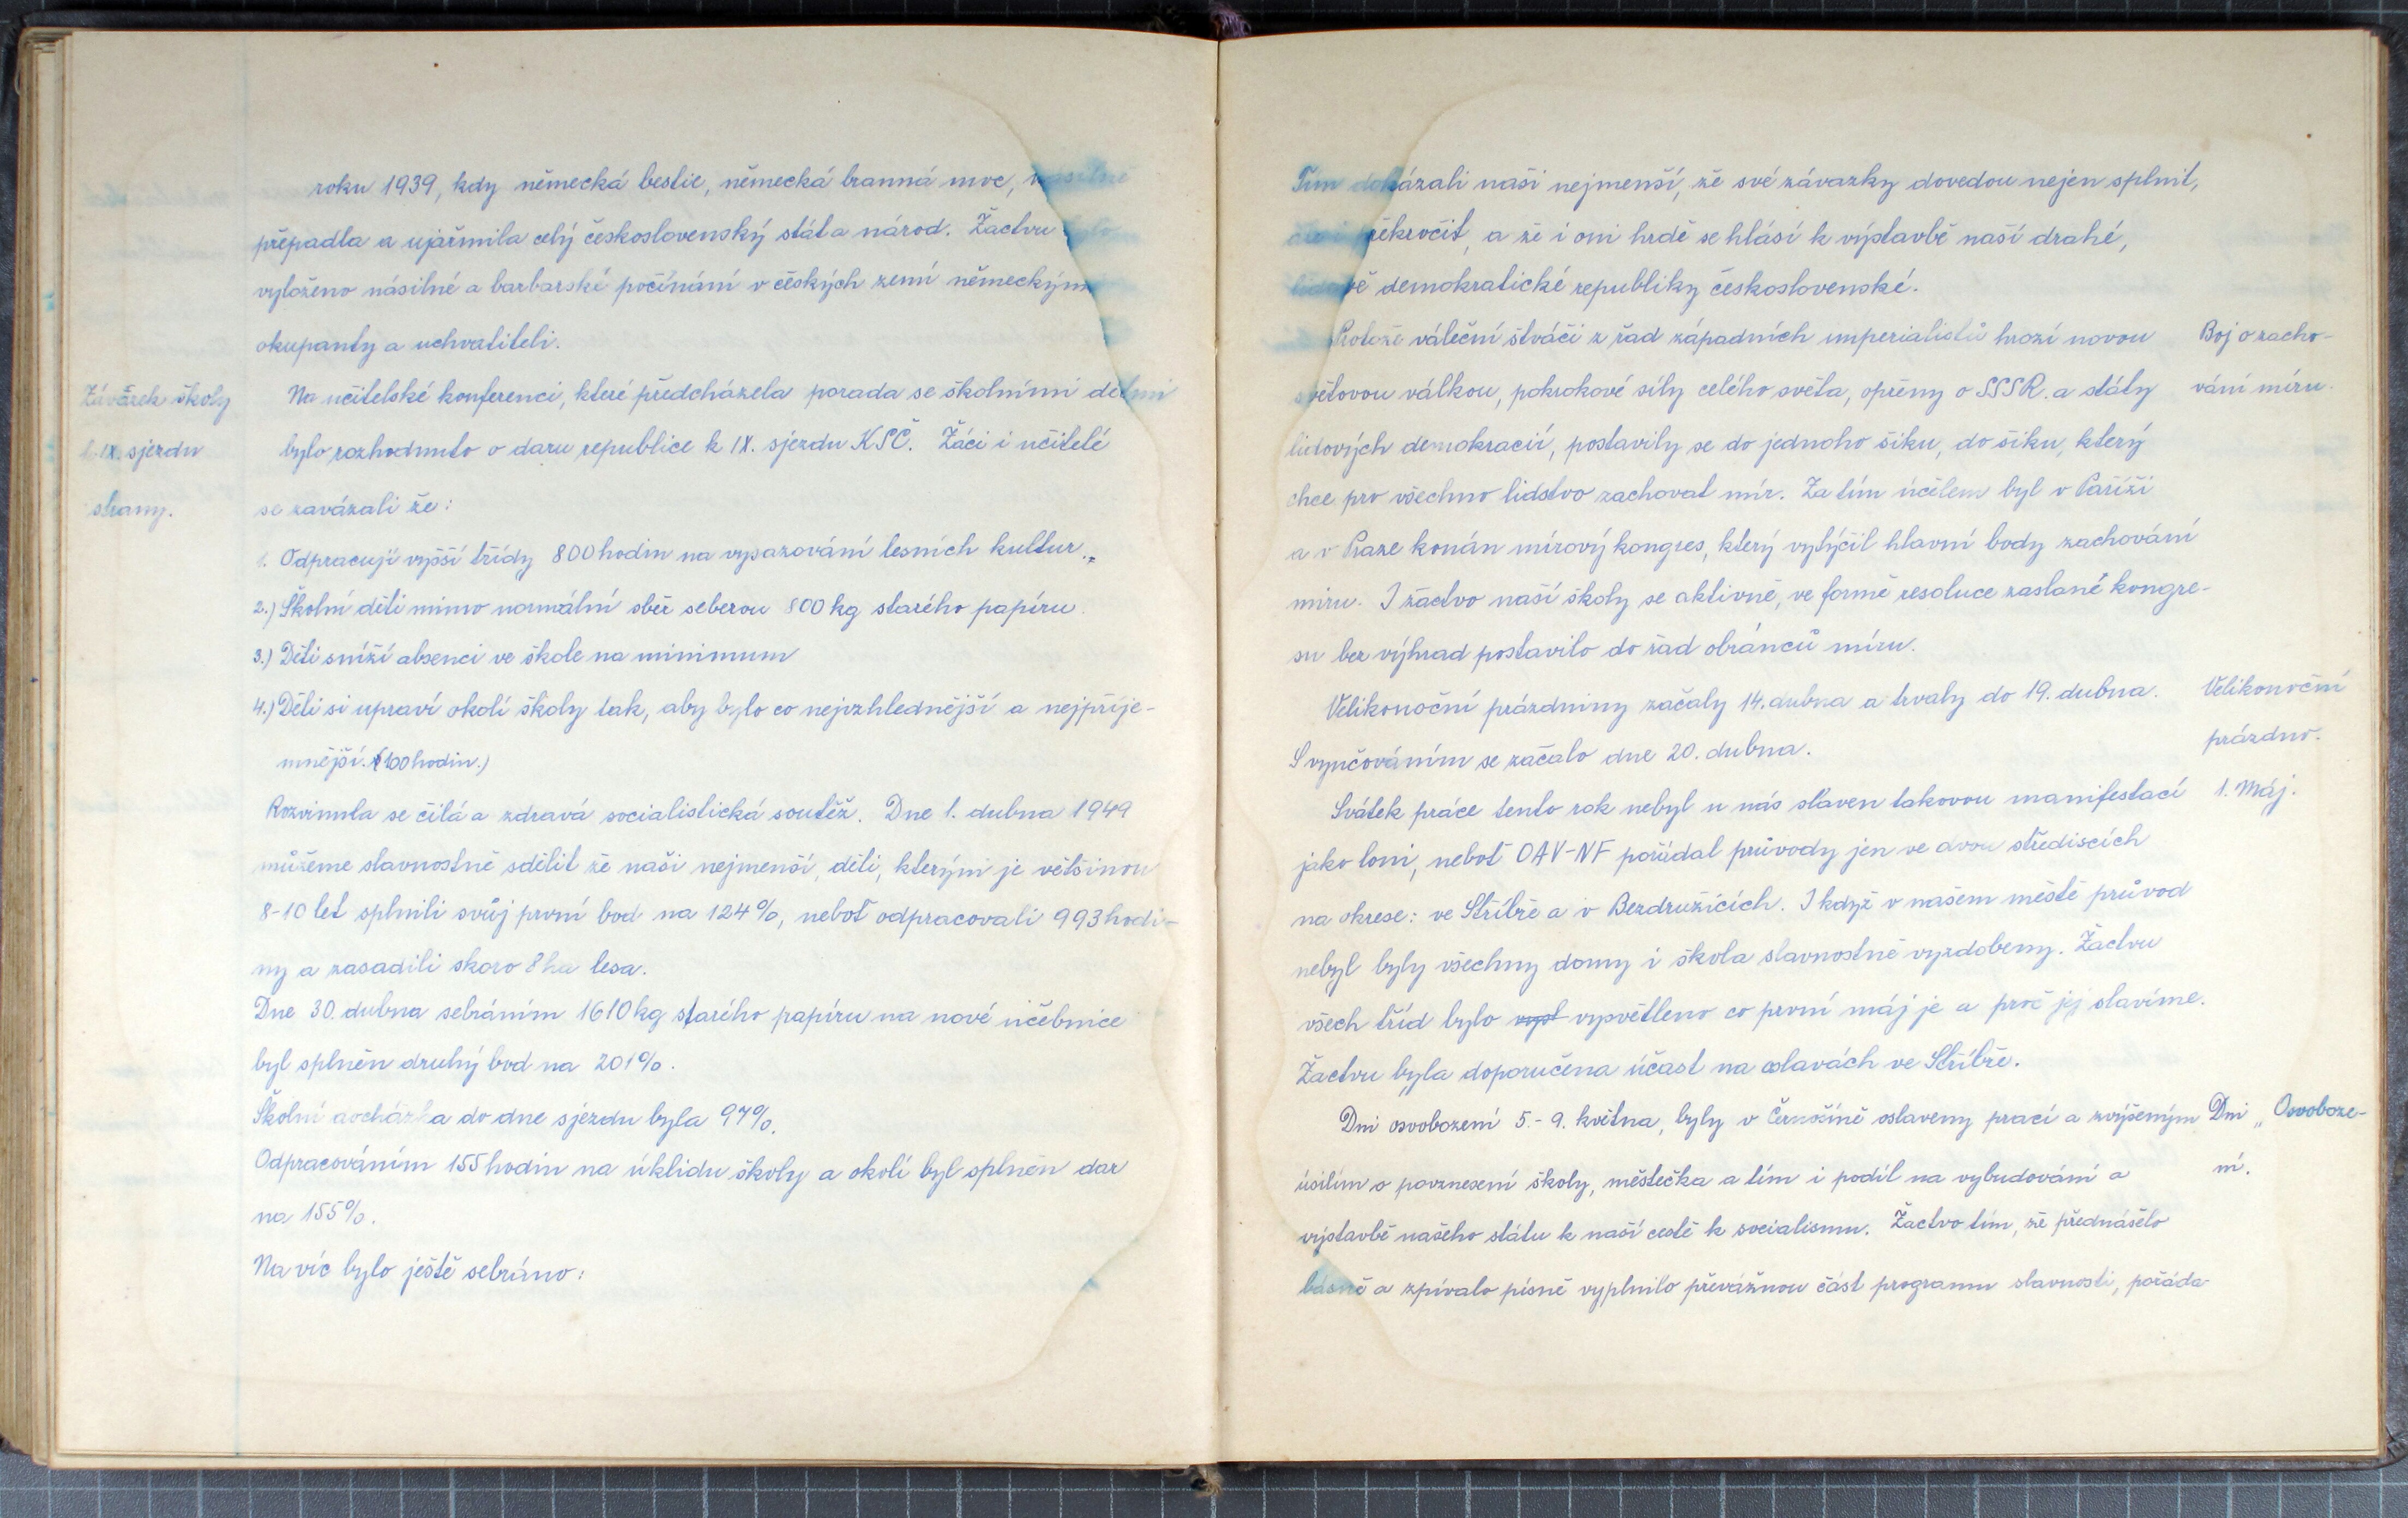 roku 1939, kdy německá bestie, německá branná moc, násilně
přepadla a ujařmila celý československý stát a národ. Žactvu bylo
vyloženo násilné a barbarské počínání v českých zemí německým
okupanty a uchvatiteli.
Závazek školy
k IX. sjezdu
strany.
Na učitelské konferenci, které předcházela porada se školními dětmi
bylo rozhodnuto o daru republice k IX. sjezdu KSČ. Žáci i učitelé
se zavázali že:
1. Odpracují vyšší třídy 800 hodin na vysazování lesních kultur.
2.) Školní děti mimo normální sběr seberou 800 kg starého papíru.
3.) Děti sníží absenci ve škole na minimum
4.) Děti si upraví okolí školy tak, aby bylo co nejvzhlednější a nejpříje-
mnější. (100 hodin.)
Rozvinula se čilá a zdravá socialistická soutěž. Dne 1. dubna 1949
můžeme slavnostně sdělit že naši nejmenší, děti, kterým je většinou
8-10 let splnili svůj první bod na 124%, neboť odpracovali 993 hodi-
ny a zasadili skoro 8 ha lesa.
Dne 30. dubna sebráním 1610 kg starého papíru na nové učebnice
byl splněn druhý bod na 201%.
Školní docházka do dne sjezdu byla 97%.
Odpracováním 155 hodin na úklidu školy a okolí byl splněn dar
na 155%.
Na víc bylo ještě sebráno:
Tím dokázali naši nejmenší, že své závazky dovedou nejen splnit,
ale i překročit, a že i oni hrdě se hlásí k výstavbě naší drahé,
lidově demokratické republiky československé.
Protože váleční štváči z řad západních imperialistů hrozí novou
světovou válkou, pokrokové síly celého světa, opřeny o SSSR. a státy
lidových demokracií, postavily se do jednoho šiku, do šiku, který
chce pro všechno lidstvo zachovat mír. Za tím účelem byl v Paříži
a v Praze konán mírový kongres, který vytýčil hlavní body zachování
míru. I žactvo naší školy se aktivně, ve formě resoluce zaslané kongre-
su bez výhrad postavilo do řad obránců míru.
Boj o zacho-
vání míru.
Velikonoční prázdniny začaly 14. dubna a trvaly do 19. dubna.
S vyučováním se začalo dne 20. dubna.
Velikonoční
prázdno.
Svátek práce tento rok nebyl u nás slaven takovou manifestací
jako loni, neboť OAV-NF pořádal průvody jen ve dvou střediscích
na okrese: ve Stříbře a v Bezdružicích. I když v našem městě průvod
nebyl byly všechny domy i škola slavnostně vyzdobeny. Žactvu
všech tříd bylo vyst vysvětleno co první máj je a proč jej slavíme.
Žactvu byla doporučena účast na oslavách ve Stříbře.
1. Máj.
Dni osvobození 5.-9. května, byly v Černošíně oslaveny prací a zvýšeným
úsilím o povznesení školy, městečka a tím i podíl na vybudování a
výstavbě našeho státu k naší cestě k socialismu. Žactvo tím, že přednášelo
básně a zpívalo písně vyplnilo převážnou část programu slavnosti, pořáda
Dni „Osvoboze-
ní.